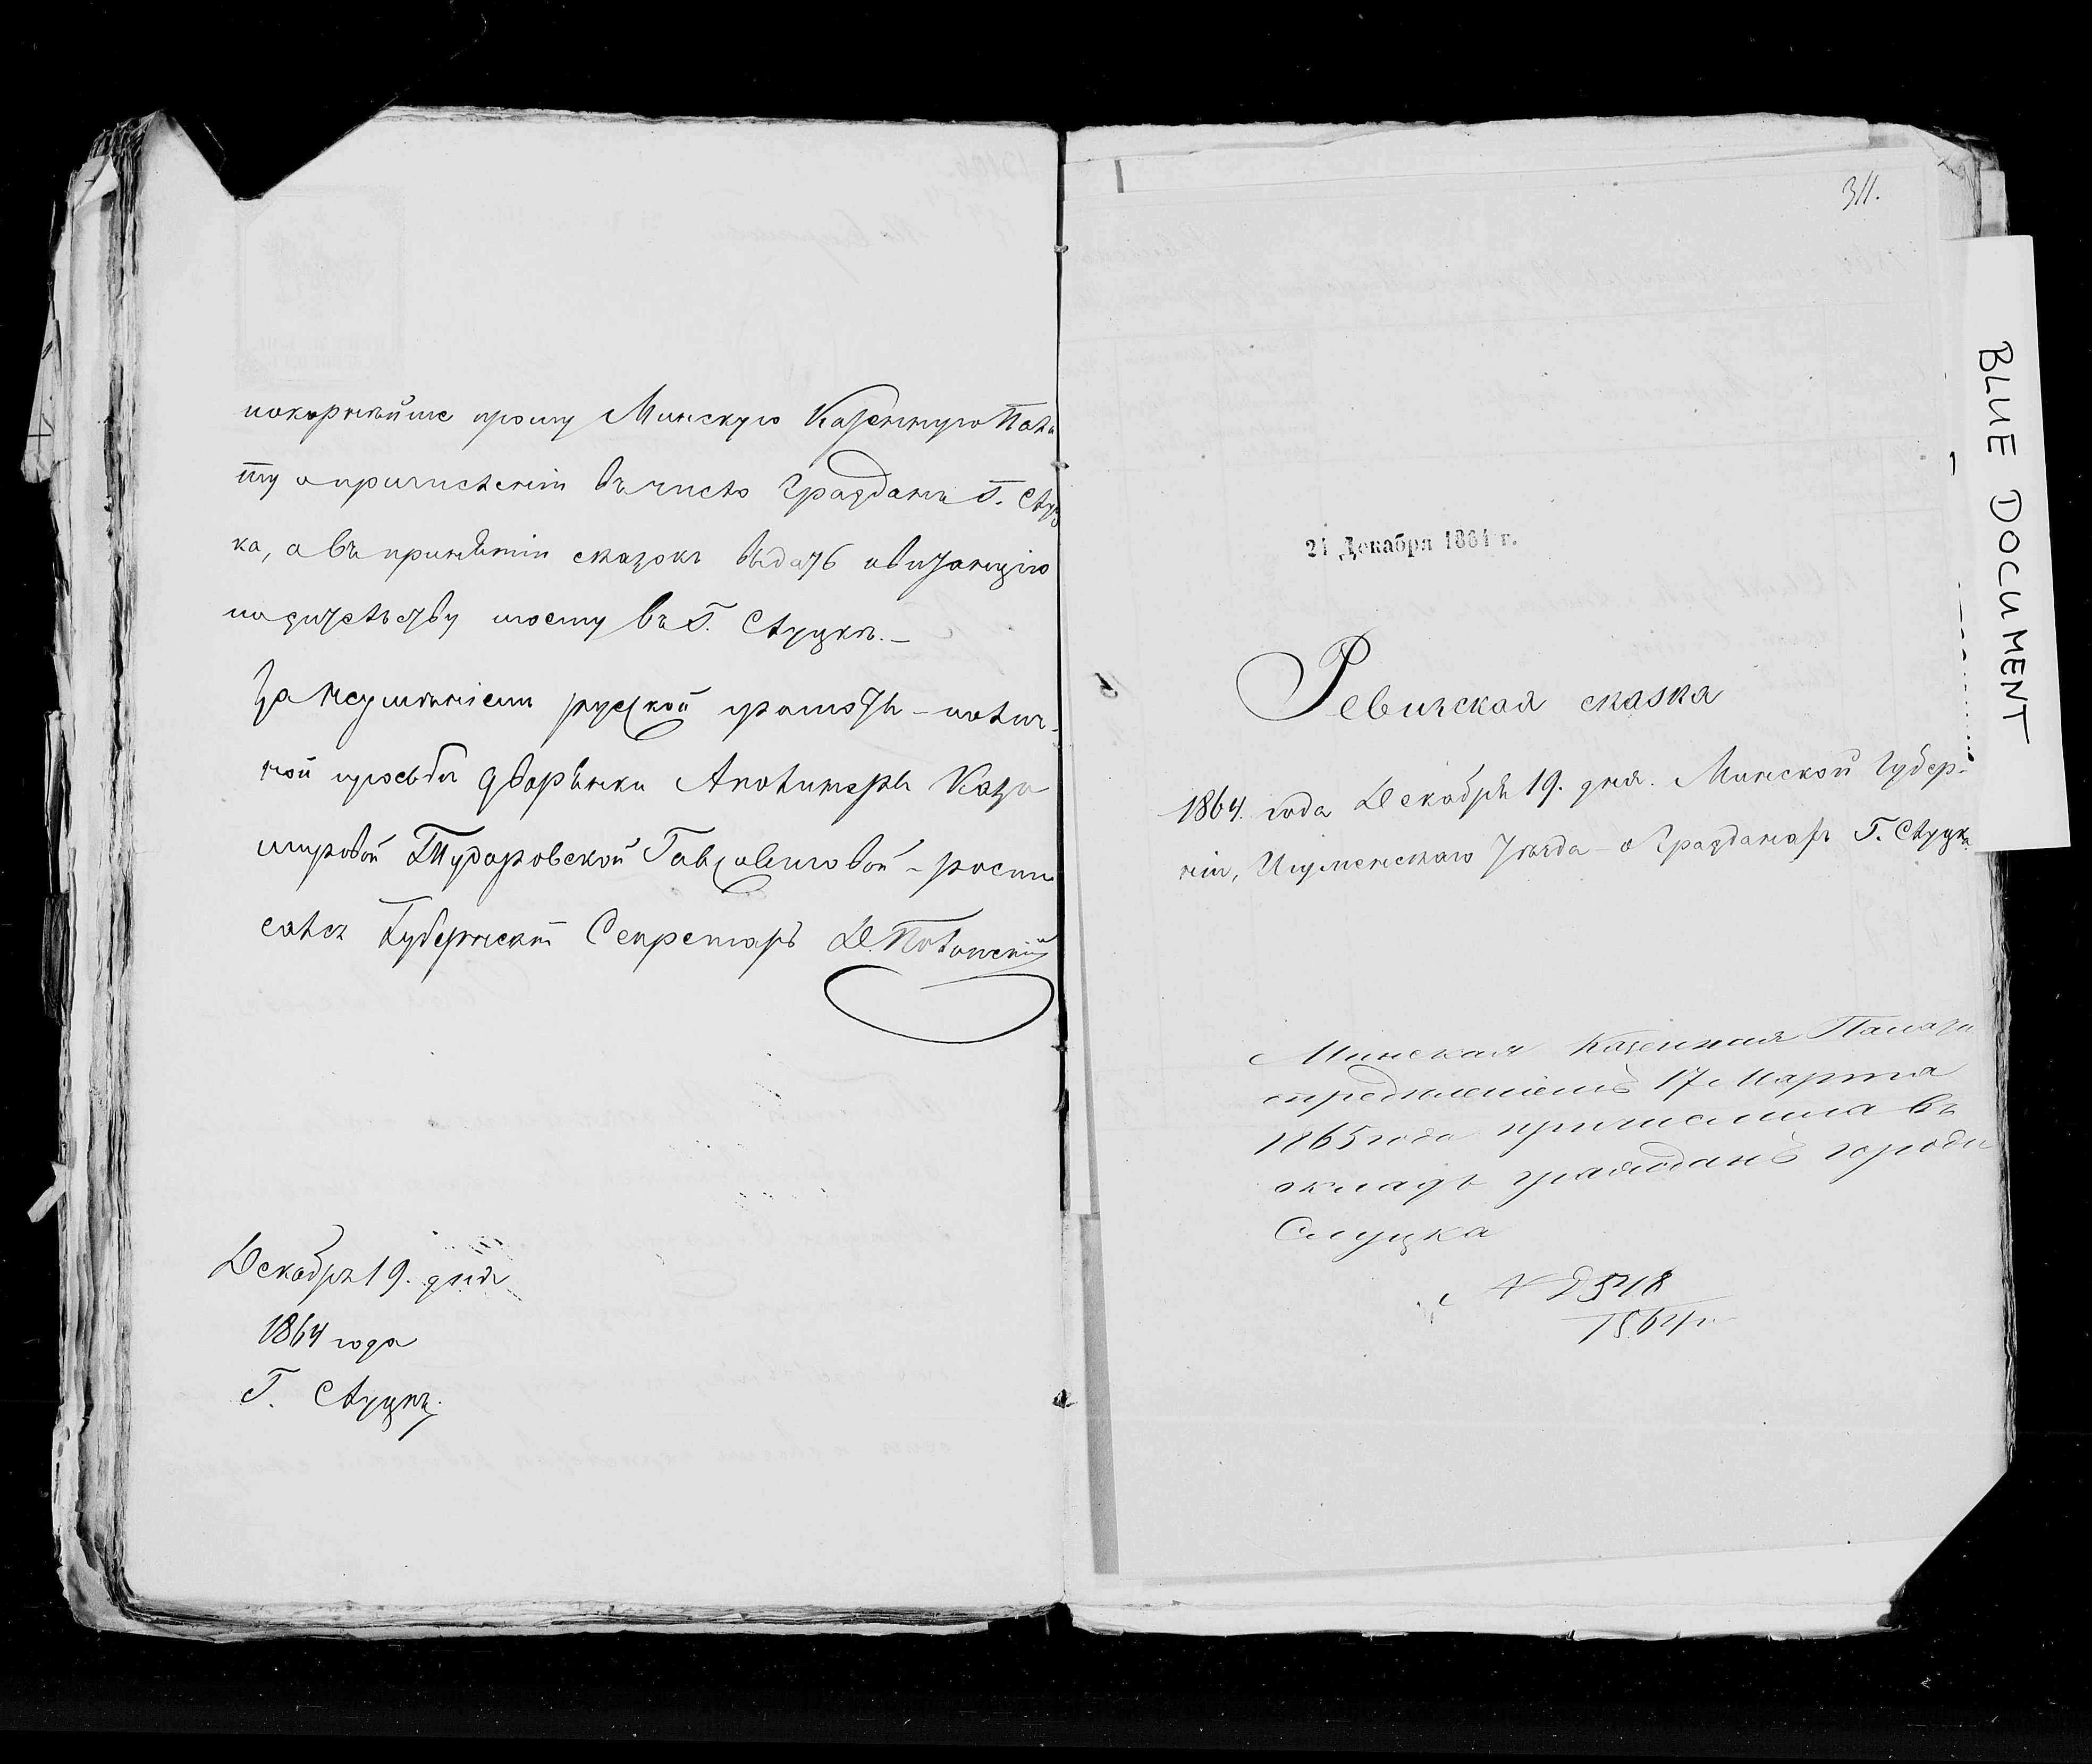 покорнѣйше прошу Минскую Казенную Пала
ту о причисленіи въ число Гражданъ Г. Слуц
ка, а въ принятіи сказокъ выдать квитанцію
по жительству моему въ Г. Слуцкѣ.—
За неумѣніемъ русской грамоты – по лич-
ной просьбѣ дворянки Аполинары Кази
мировой – роспи
сался Губернскій Секретарь Д.
Декабря 19. дня
1864 года
Г. Слуцкъ.
311.
21 Декабря 1864 г.
Ревизская сказка
1864. года Декабря 19. дня. Минской Губер-
ніи, Игуменскаго Уѣзда – о Гражданахъ Г. Слуцка
Минская Казенная Палата
опредѣленіемъ 17 Марта
1865 года причислила въ
окладъ гражданъ города
Слуцка
1864 г.
BLUE DOCUMENT